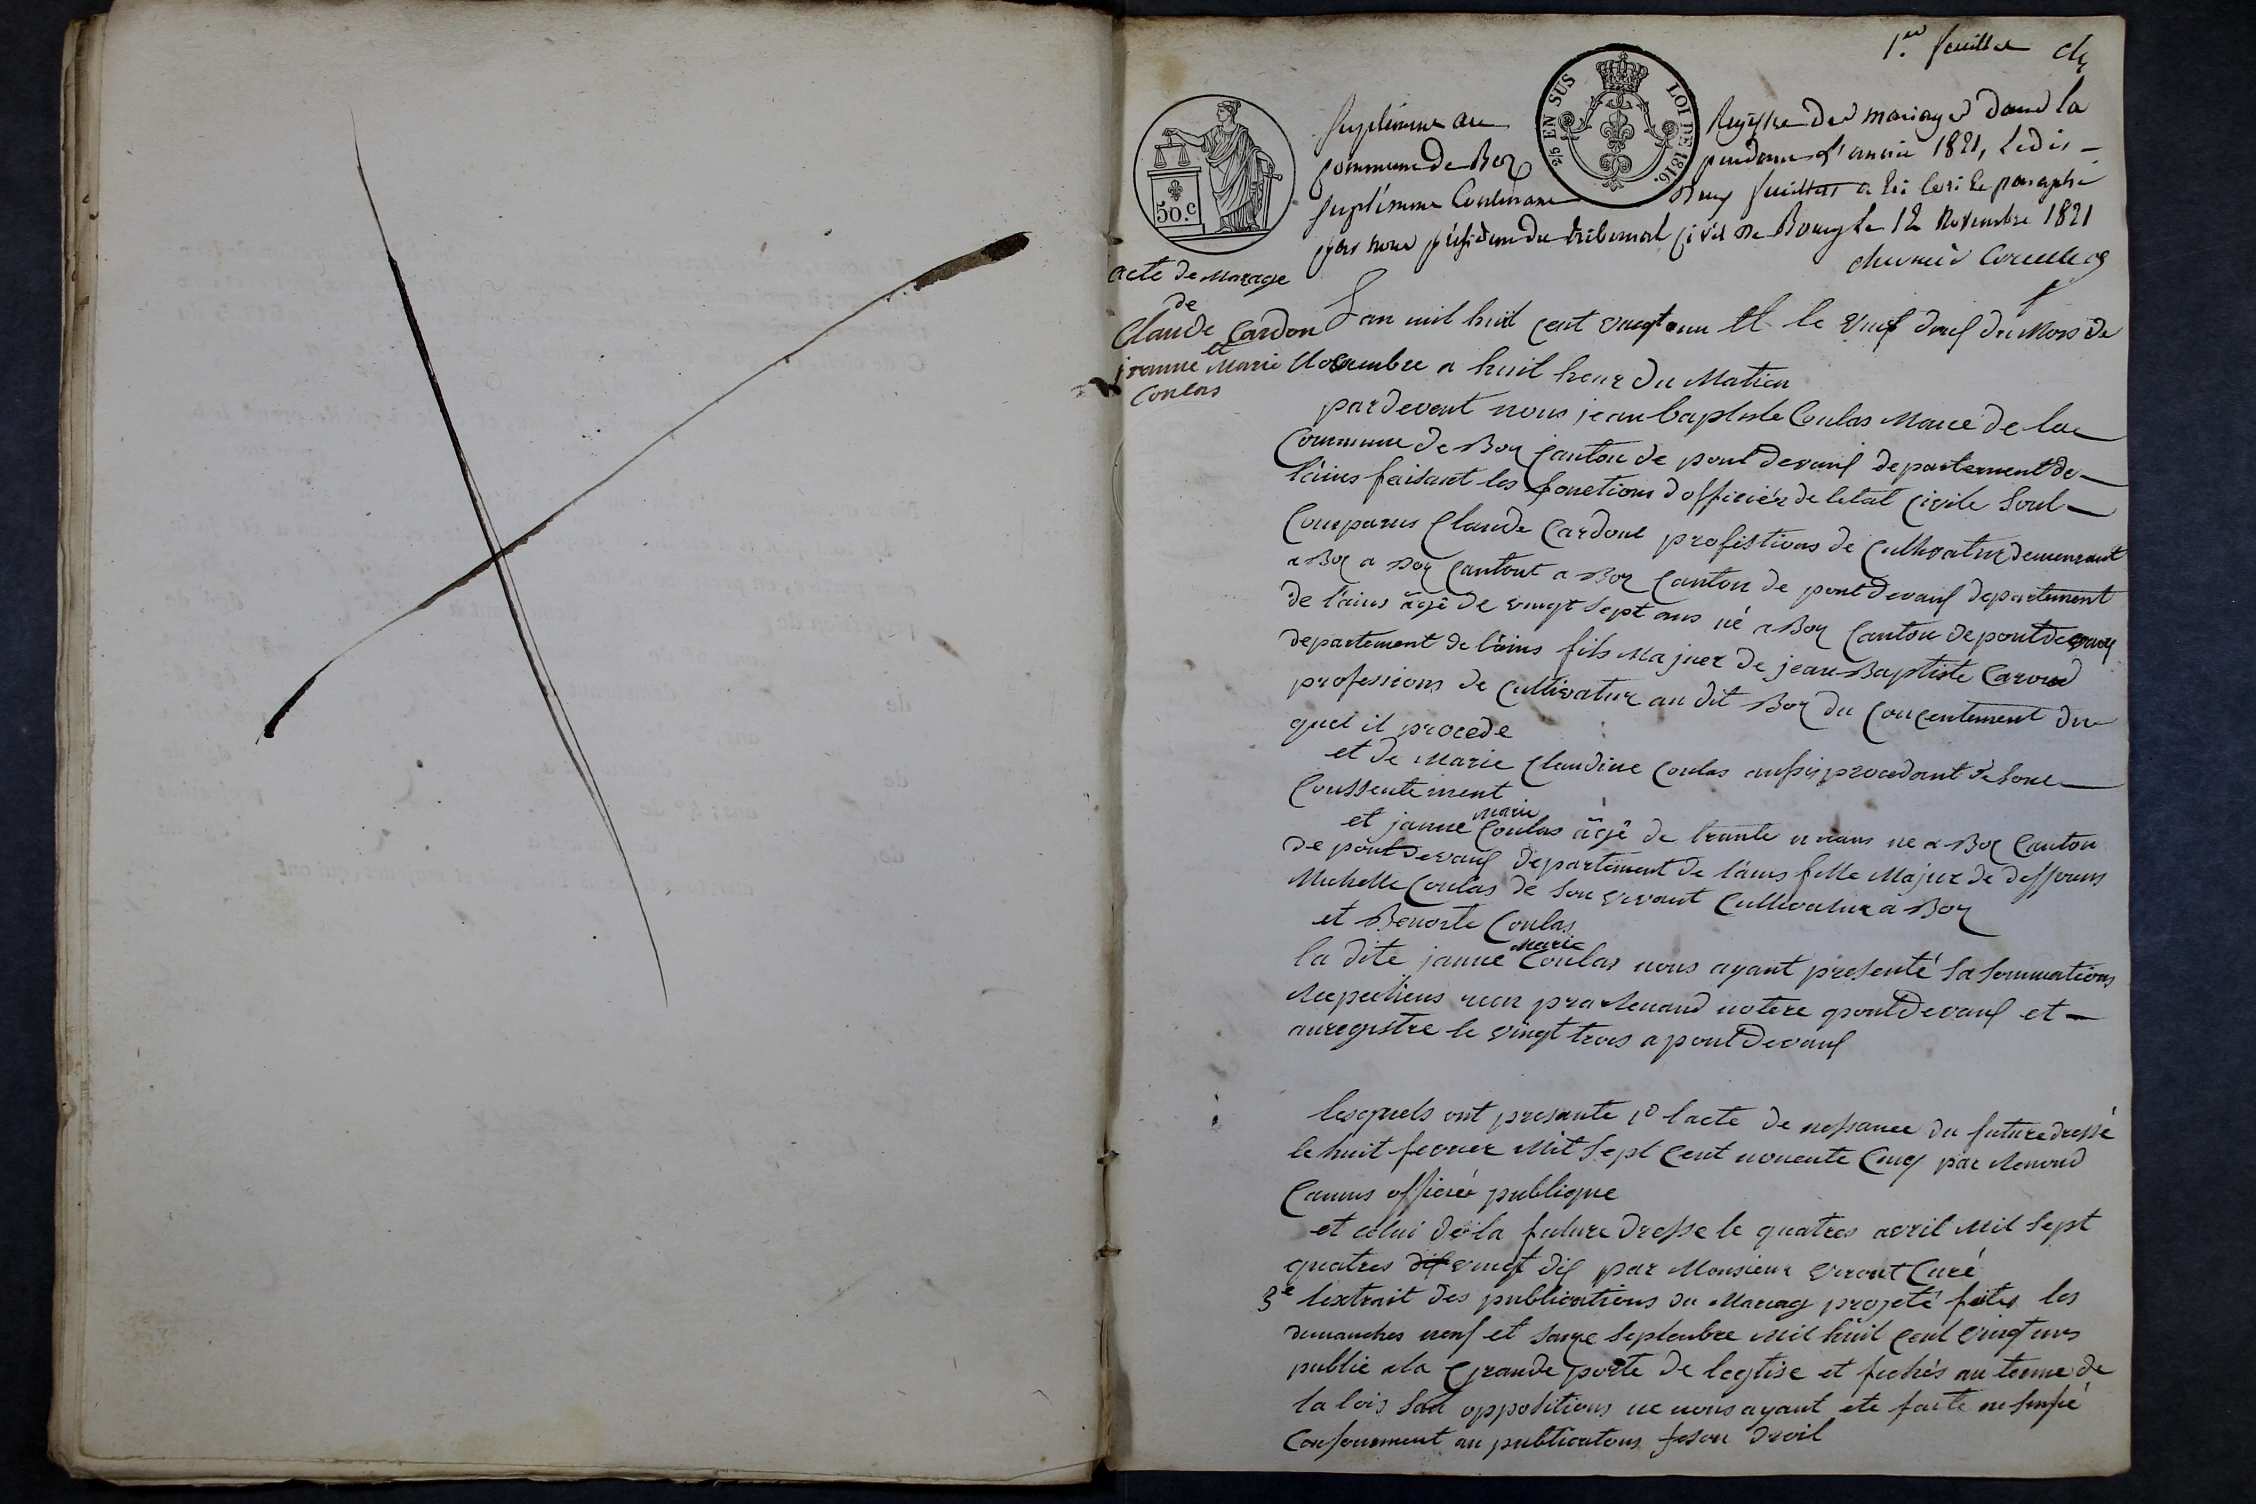 1.er feuillet
Suplément au Registre des mariages dans la
commune de Boz pendant l'année 1821, Le dit
suplément Contenant Deux feuillets a été coté et paraphé
par nous président du tribunal civil de Bourg le 12 Novembre 1821
LOI DE 1816.
EN SUS
50.c
acte de Marage
de
Claude Cardon
et
jeanne Marie
Coulas
L'an mil huit cent vingt un et le vingt du Mois de
Novembre a huit heur du Matien
pardevent nous jean baptiste Coulas Maire de la
Commune de Boz Canton de pont devaux departement de
lains faisant les fonctions d'officiér de letat Civile sout
Comparus Claude Cardont profistions de Cultivatur demeurant
a Boz a Boz Cantont a Boz Canton de pont devaux departement
de lains âgé de vingt sept ans né a Boz Canton de pont devaux
departement de lains fils Majuer de jean Baptiste Caront
professions de Cultivatur au dit Boz du Concentement du
quel il procede
et de Marie Claudine Coulas aussi procedant de sont
Conssentement
et janne marie Coulas âgé de trante un ans ne a Boz Canton
de pont devaux departement de lains fille Majur de deffouns
Michelle Coulas de son vivant Cultivatur a Boz
et Benoite Coulas
la dite janne Marie Coulas nous ayant presenté sa sommations
notere pont devaux et
anregistre le vingt trois a pont devaux
lesquels ont presante 1o lacte de nessance du future dressé
le huit fevrier Mil sept cent nonente Cinq par
Camus officiér publique
et celui de la future dresse le quatres avril Mil sept
quatres dix vingt dix par Monsieur Curé
3e lextrait des publications du Mariag projeté faites les
dimanches neuf et saize septembre mil huit cent vingt uns
publie a la grande porte de leglise et fichés au terme de
la lois opposition ne nous ayant eté faite
Conforement au publications droit